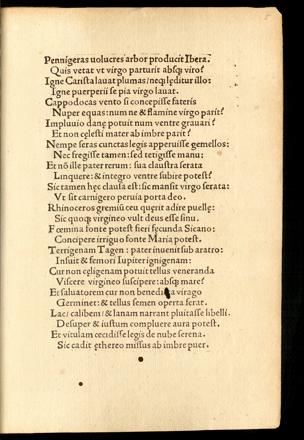 Pennigeras uolucres arbor producit Ibera.
Quis vetat vt virgo parturit absqꝫ viro?
Igne Carista lauat plumas/neqꝫ lęditur illo:
Igne puerperii se pia virgo lauat.
Cappodocas vento si concepisse fateris
Nuper equas: num ne & flamine virgo parit?
Impluuio danę potuit num ventre grauari?
Et non cęlesti mater ab imbre parit?
Nempe seras cunctas legis apperuisse gemellos:
Nec fregisse tamen: sed tetigisse manu:
Et nō ille pater rerum: sua claustra serata
Linquere: & integro ventre subire potest?
Sic tamen hęc clausa est: sic mansit virgo serata:
Vt sit carnigero peruia porta deo.
Rhinoceros gremiū ceu quęrit adire puellę:
Sic quoqꝫ virgineo vult deus esse sinu.
Fœmina fonte potest fieri sęcunda Sicano:
Concipere irriguo fonte Maria potest.
Terrigenam Tagen: pater inuenit sub aratro:
Insuit & femori Iupiter ignigenam:
Cur non cęligenam potuit tellus veneranda
Viscere virgineo suscipere: absqꝫ mare?
Et saluatorem cur non virago
Germinet: & tellus semen operta serat.
Lac/ calibem/ & lanam narrant pluitasse libelli.
Desuper & iustum compluere aura potest.
Et vitulam cecidisse legis de nube serena.
Sic cadit ęthereo missus ab imbre puer.